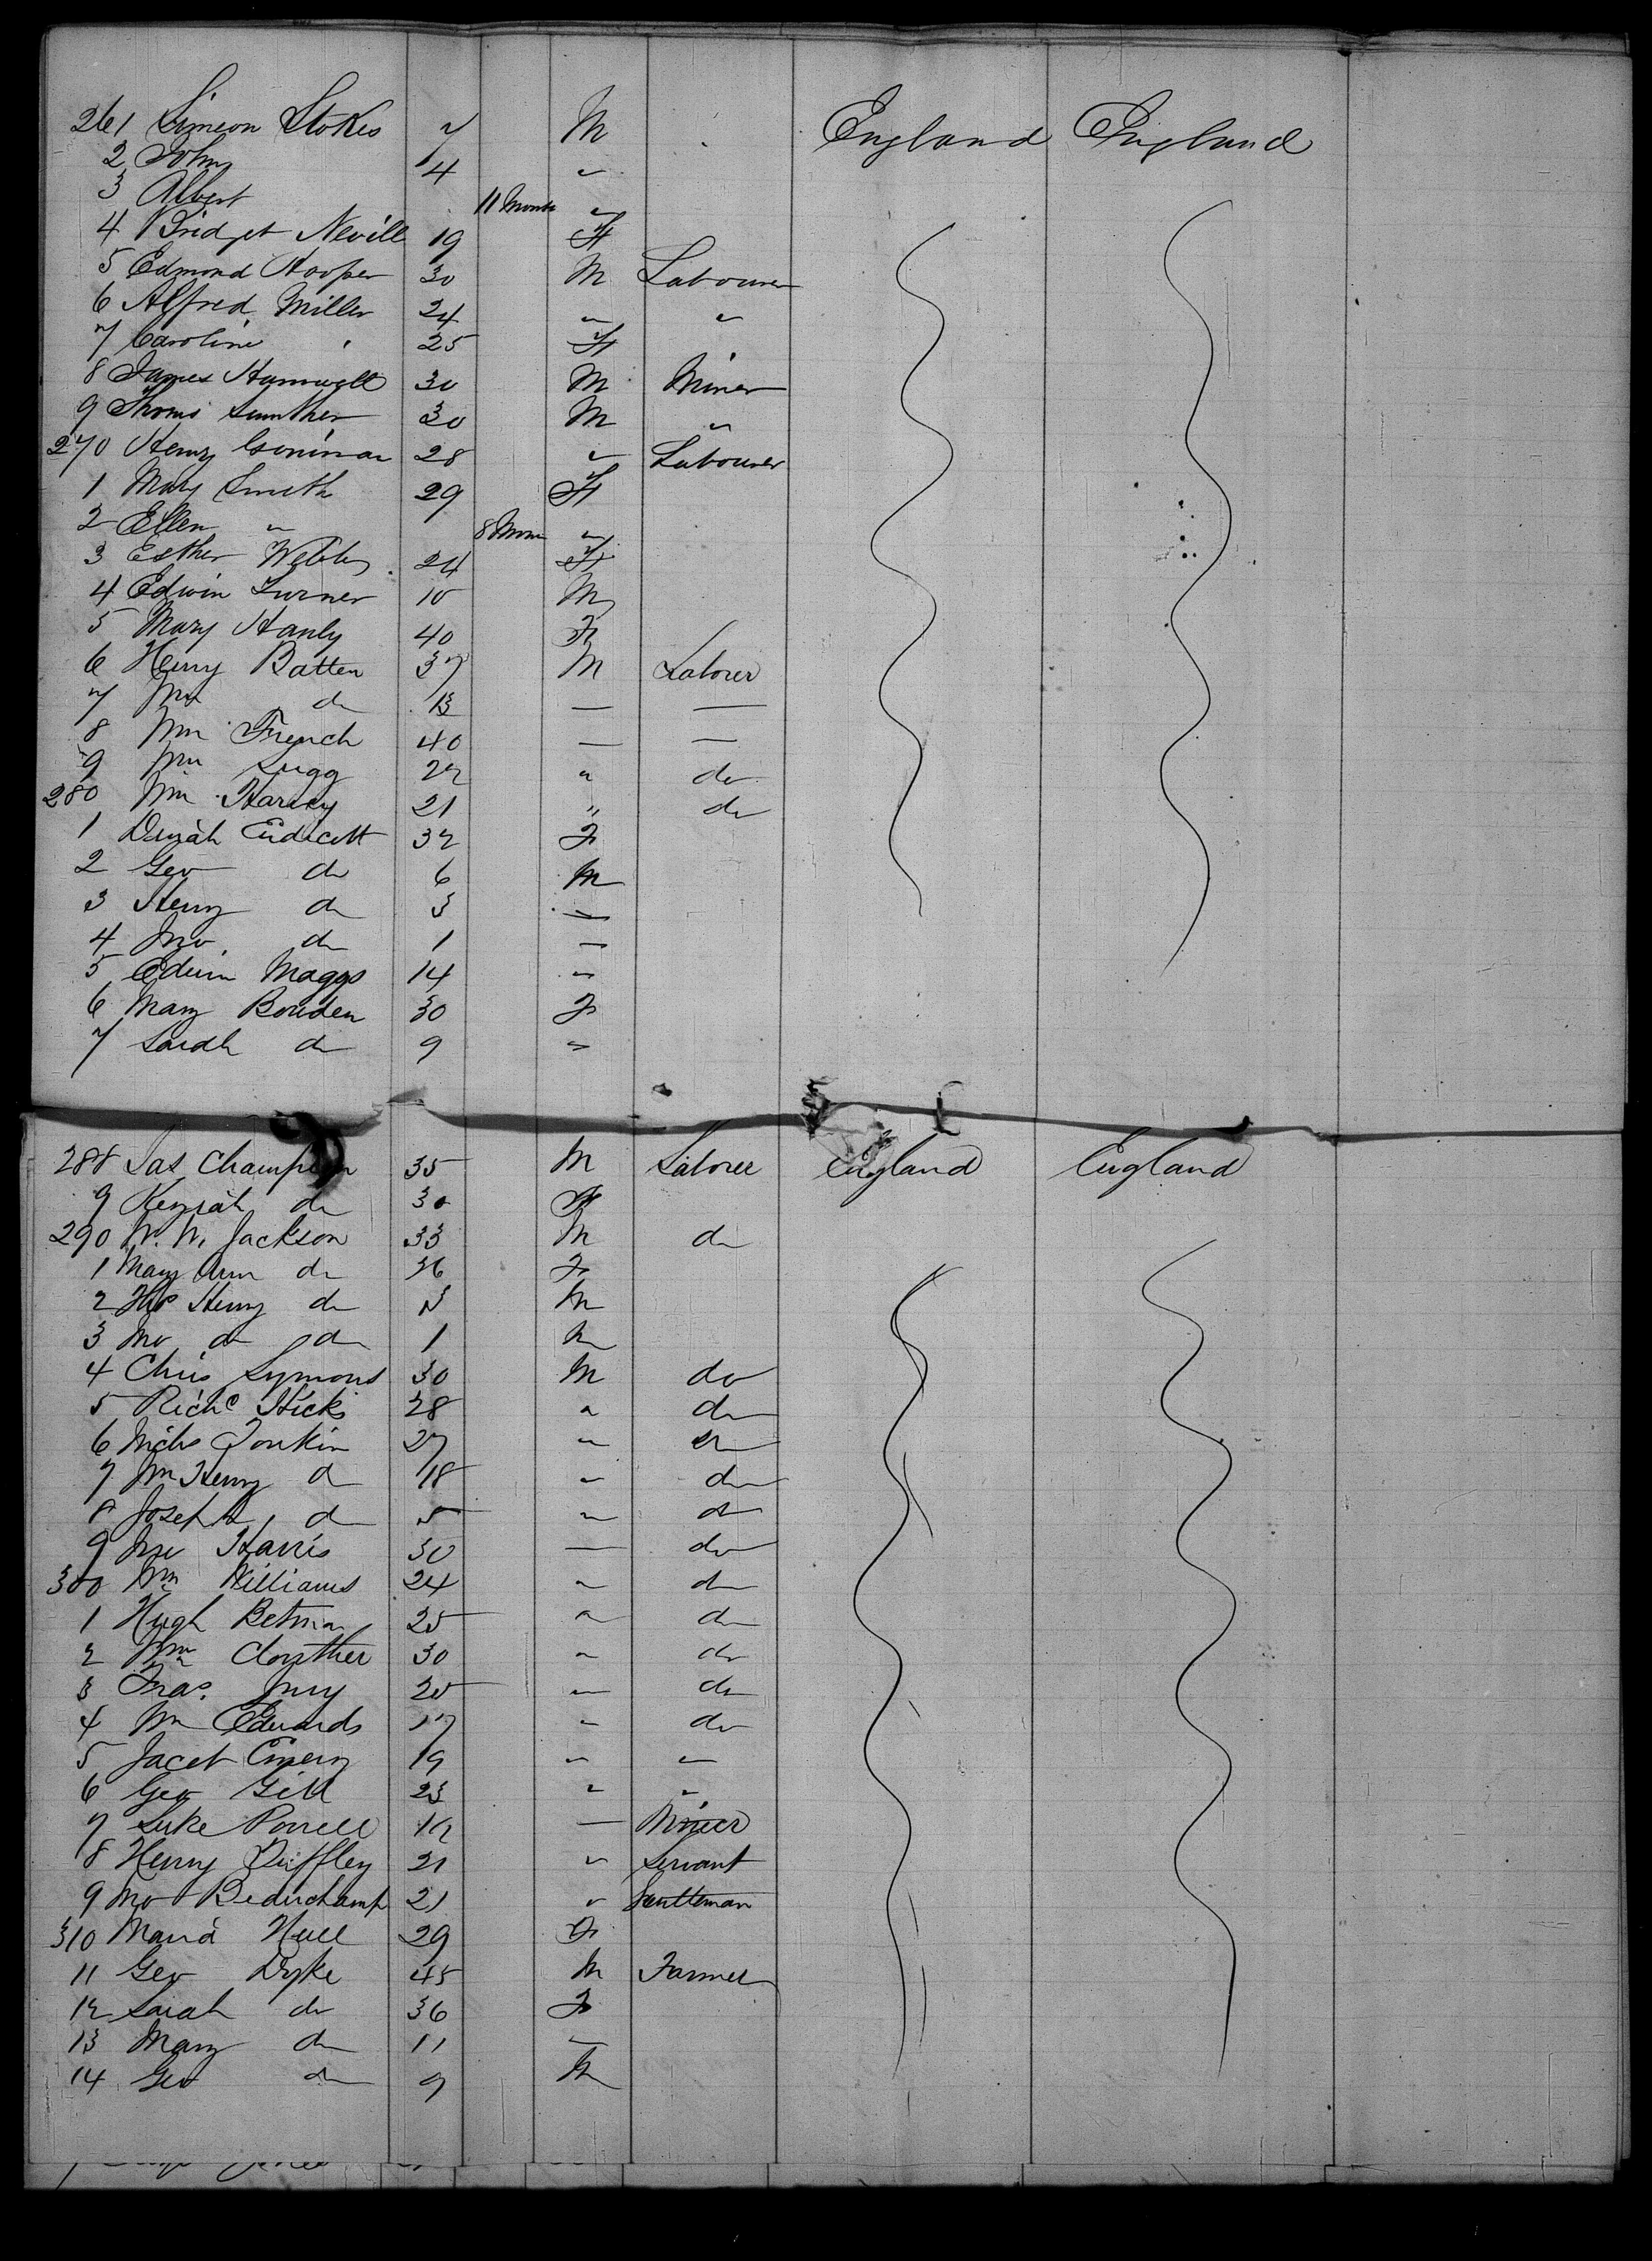 261 Simeon Stokes 7 M England England
2 John 4 "
3 Albert 11 Months "
4 Bridget Nevill 19 F
5 Edmond Hooper 30 M Labourer
6 Alfred Miller 24 " "
7 Caroline " 25 F
8 James Hamwell 30 M Miner
9 Thoms 30 M "
270 Henry 28 " Labourer
1 Mary Smith 29 F
2 Ellen " 8 Mon "
3 Esther Webb 24 F
4 Edwin Turner 10 M
5 Mary Hanly 40 F
6 Henry Batten 37 M Laborer
7 Wm do 13 — —
8 Wm French 40 — —
9 Wm Lugg 22 " do
280 Wm Harvey 21 " do
1 Endicott 32 F
2 Geo do 6 M
3 Henry do 3 —
4 Jno do 1 —
5 Edwin Maggs 14 "
6 Mary Bowden 30 F
7 Sarah do 9 "
288 Jas Champion 35 M Laborer England England
9 Keziah do 30 F
290 W. W. Jackson 33 M do
1 Mary Ann do 36 F
2 Thos Henry do 3 M
3 Jno do do 1 M
4 Chris Symons 30 M do
5 Richd Hicks 28 " do
6 Nichs Tonkin 27 " do
7 Wm Henry do 18 " do
8 Joseph do " do
9 Jno Harris 30 — do
300 Wm Williams 24 " do
1 Hugh 25 " do
2 Wm 30 " do
3 Fras. Jury 20 " do
4 Wm Edwards 17 " do
5 Jacob Emery 19 " "
6 Geo Gill 23 " "
7 Luke Powell 19 — Miner
8 Henry Duffley 21 " Servant
9 Jno Beauchamp 21 " Gentleman
310 Maria Hull 29 F
11 Geo Dyke 45 M Farmer
12 Sarah do 36 F
13 Mary do 11 —
14 Geo do 9 M